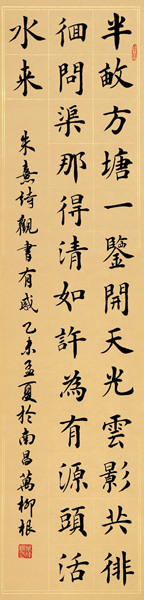 半畝方塘一鑒開天光雲影共徘
徊問渠那得清如許為有源頭活
水来
朱熹詩觀書有感乙未孟夏於南昌萬柳根